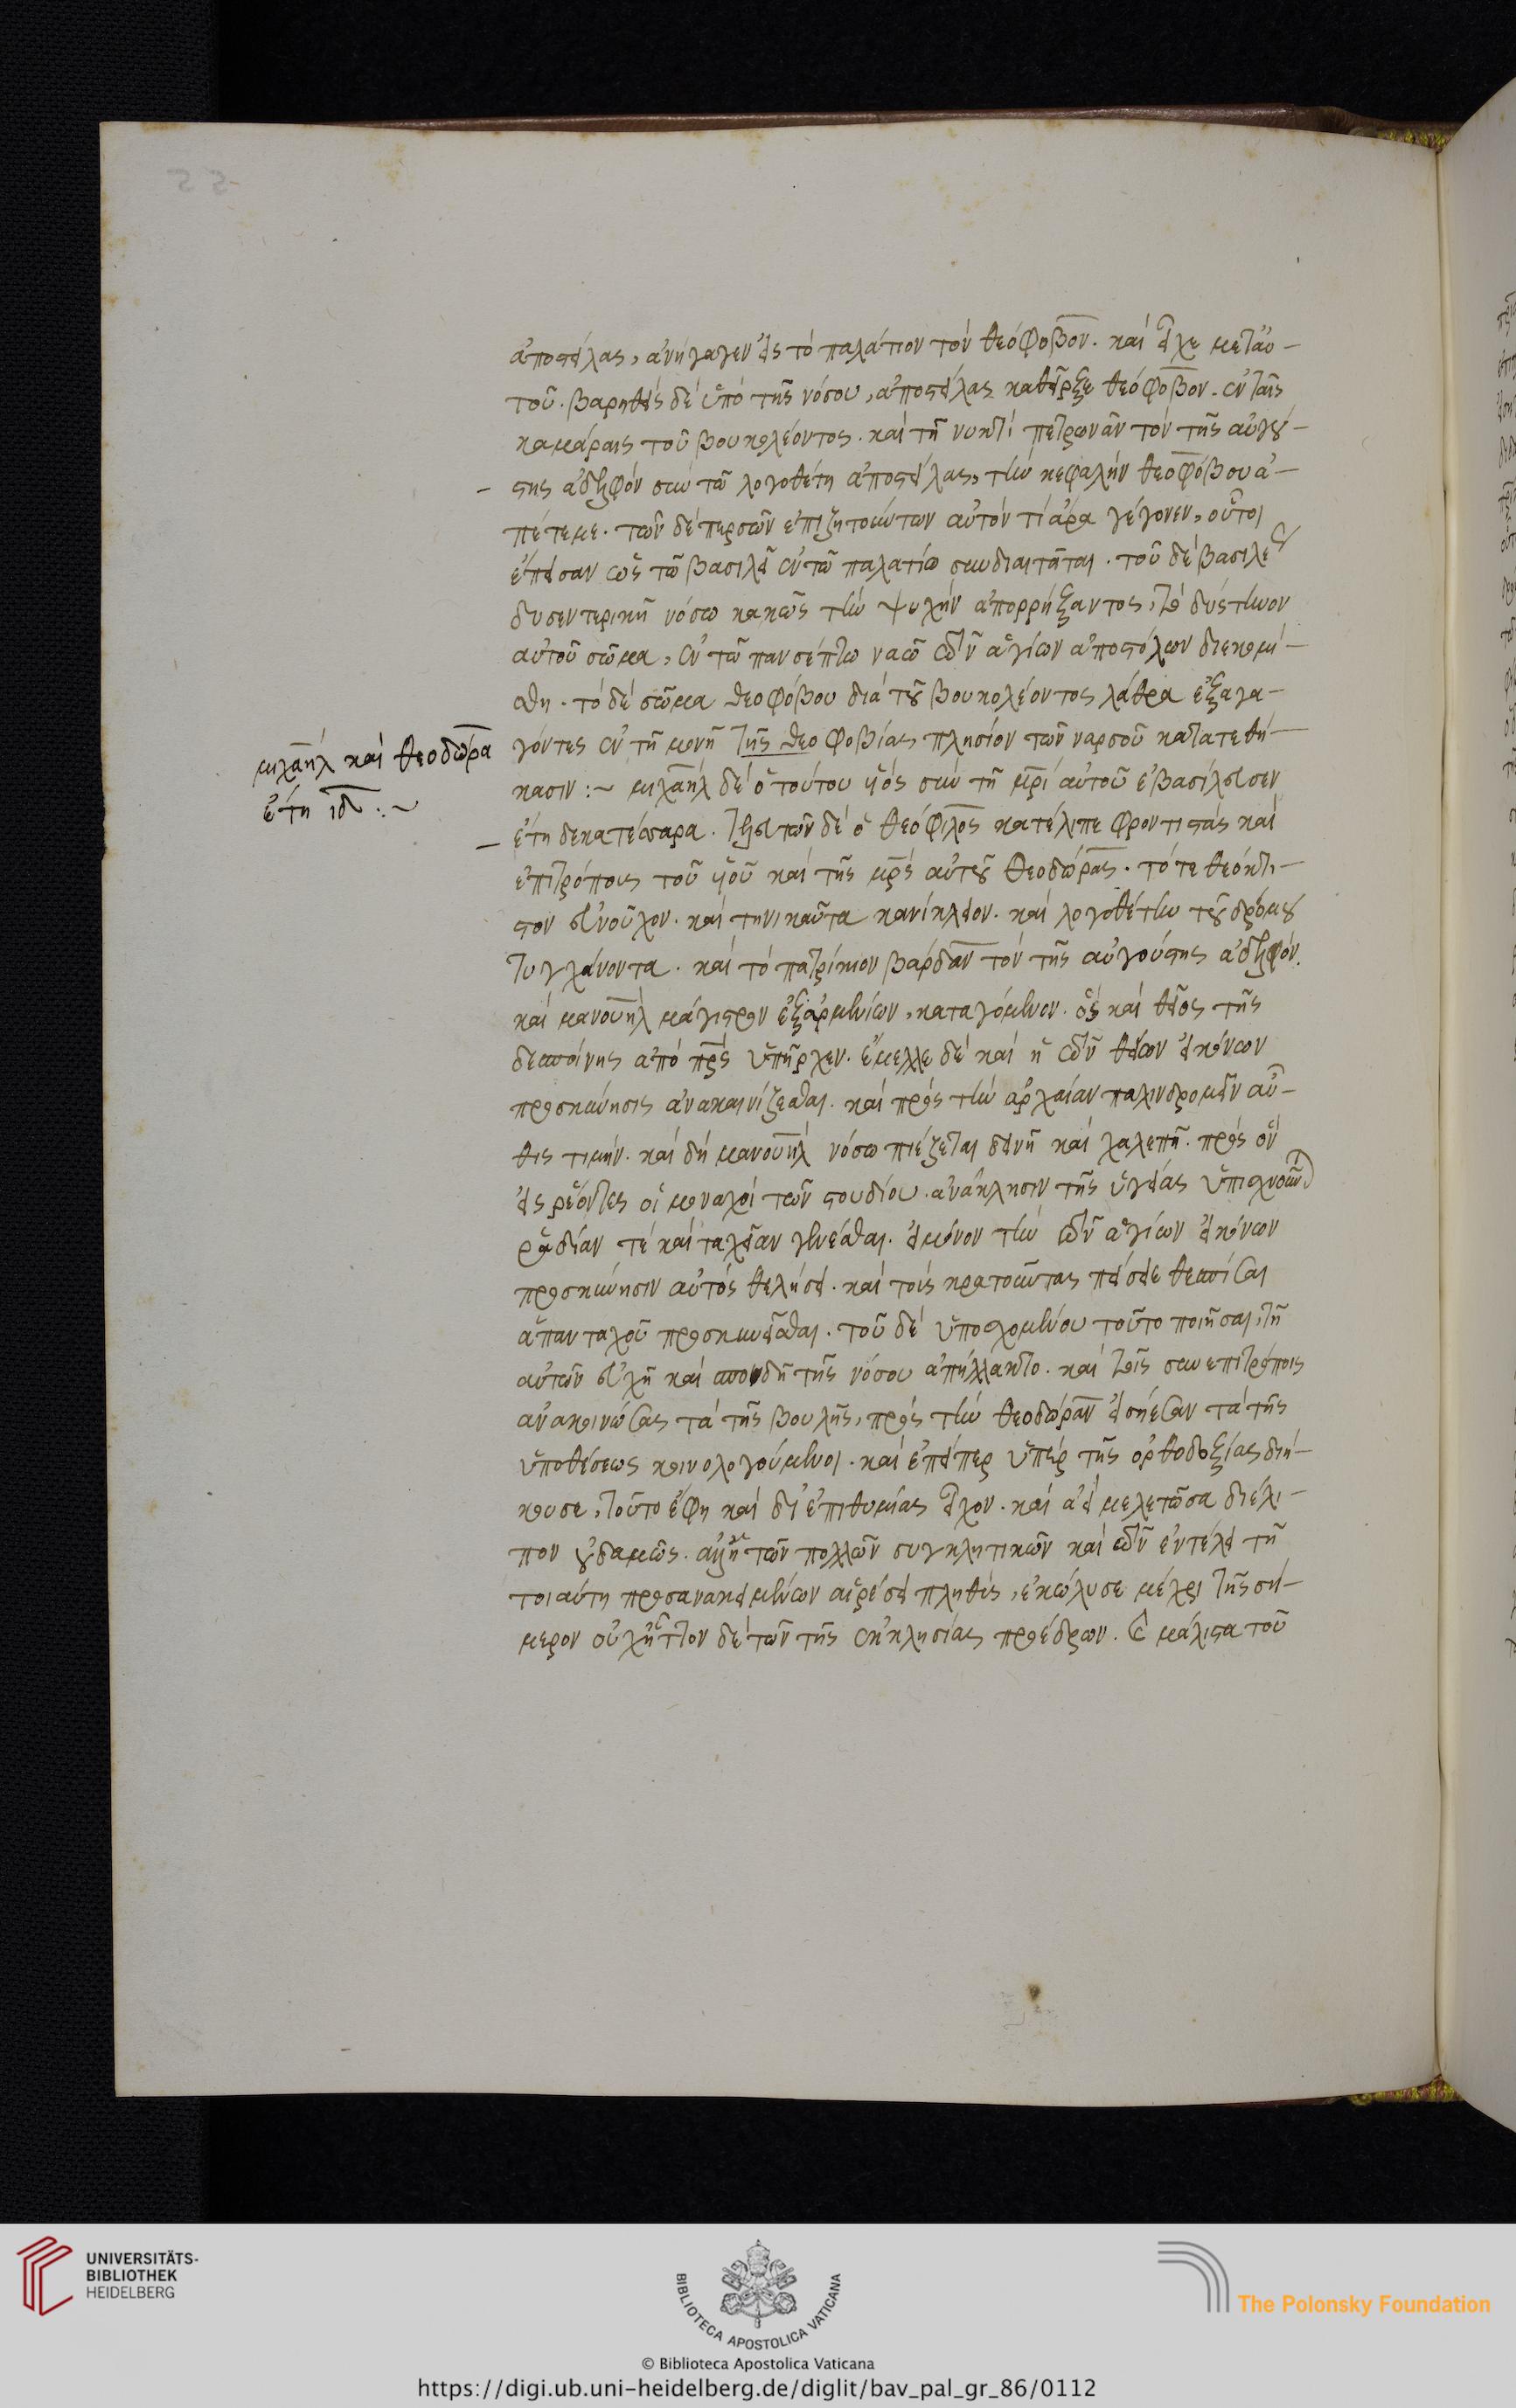 ἀποστείλας, ἀνήγαγεν εἰς τὸ παλάτιον τὸν θεόφοβον. καὶ εἶχε μεταυ-
τοῦ. βαρηθεὶς δὲ ὑπὸ τῆς νόσου, ἀποστείλας καθεῖρξε θεόφοβον. ἐν ταῖς
καμάραις τοῦ βουκολέοντος. καὶ τῆ νυκτὶ πετρωνᾶν τὸν τῆς αὐγού-
στης ἀδελφὸν σὺν τῶ λογοθέτη ἀποστείλας, τὴν κεφαλὴν θεοφόβου ἀ-
πέτεμε. τῶν δὲ περσῶν ἐπιζητούντων αὐτὸν τί ἄρα γέγονεν, οὗτοι
ἔπεισαν ὡς τῶ βασιλεῖ ἐν τῶ παλατίω συνδιαιτᾶται. τοῦ δὲ βασιλέως
δυσεντερικῆ νόσω κακῶς τὴν ψυχὴν ἀπορρήξαντος, τὸ δύστηνον
αὐτοῦ σῶμα, ἐν τῶ πανσέπτω ναῶ τῶν ἁγίων ἀποστόλων διεκομί-
σθη. τὸ δὲ σῶμα θεοφόβου διὰ τοῦ βουκολέοντος λάθρα ἐξαγα-
μιχαὴλ καὶ θεοδώρα
ἔτη ιδ :~
γόντες ἐν τῆ μονῆ τῆς θεοφοβίας πλησίον τῶν ναρσοῦ κατατεθή-
κασιν :~ μιχαὴλ δὲ ὁ τούτου υἱὸς σὺν τῆ μρὶ αὐτοῦ ἐβασίλευσεν
ἔτη δεκατέσσαρα. τελευτῶν δὲ ὁ θεόφιλος κατέλιπε φροντιστὰς καὶ
ἐπιτρόπους τοῦ υἱοῦ καὶ τῆς μρὸς αὐτοῦ θεοδώρας. τό τε θεόκτι-
στον εὐνοῦχον. καὶ τηνικαῦτα κανίκλειον. καὶ λογοθέτην τοῦ δρόμου
τυγχάνοντα. καὶ τὸ πατρίκιον βάρδαν τὸν τῆς αὐγούστης ἀδελφόν.
καὶ μανουὴλ μάγιστρον ἐξαρμενίων, καταγόμενον. ὃς καὶ θεῖος τῆς
δεσποίνης ἀπὸ πρὸς ὑπῆρχεν. ἔμελλε δὲ καὶ ἡ τῶν θείων εἰκόνων
προσκύνησις ἀνακαινίζεσθαι. καὶ πρὸς τὴν ἀρχαίαν παλινδρομεῖν αὖ-
θις τιμήν. καὶ δὴ μανουὴλ νόσω πιέζεται δεινῆ καὶ χαλεπῆ. πρὸς ὃν
εἰς ρέοντες οἱ μοναχοὶ τῶν στουδίου. ἀνάκλησιν τῆς ὑγείας ὑπισχνοῦνται
ραδίαν τὲ καὶ ταχεῖαν γενέσθαι. εἰ μόνον τὴν τῶν ἁγίων εἰκόνων
προσκύνησιν αὐτὸς θελήσει. καὶ τοὺς κρατοῦντας πείσειε θεσπίσαι
ἁπανταχοῦ προσκυνεῖσθαι. τοῦ δὲ ὑποσχομένου τοῦτο ποιῆσαι, τῆ
αὐτῶν εὐχῆ καὶ σπουδῆ τῆς νόσου ἀπήλλακτο. καὶ τοῖς συνεπιτρόποις
ἀνακοινώσας τὰ τῆς βουλῆς, πρὸς τὴν θεοδώραν εἰσήεσαν τὰ τῆς
ὑποθέσεως κοινολογούμενοι. καὶ ἐπείπερ ὑπὲρ τῆς ὀρθοδοξίας διή-
κουσε, τοῦτο ἔφη καὶ δι' ἐπιθυμίας εἶχον. καὶ ἀεὶ μελετῶσα διέλι-
πον οὐδαμῶς. ἀλλ' ἢ τῶν πολλῶν συγκλητικῶν καὶ τῶν ἐντέλει τῆ
τοιαύτη προσανακειμένων αἱρέσει πληθὺς, ἐκώλυσε μέχρι τῆς σή-
μερον οὐχ' ἧττον δὲ τῶν τῆς ἐκκλησίας προέδρων. καὶ μάλιστα τοῦ
UNIVERSITÄTS-
BIBLIOTHEK
HEIDELBERG
BIBLIOTECA APOSTOLICA VATICANA
The Polonsky Foundation
© Biblioteca Apostolica Vaticana
https://digi.ub.uni-heidelberg.de/diglit/bav_pal_gr_86/0112